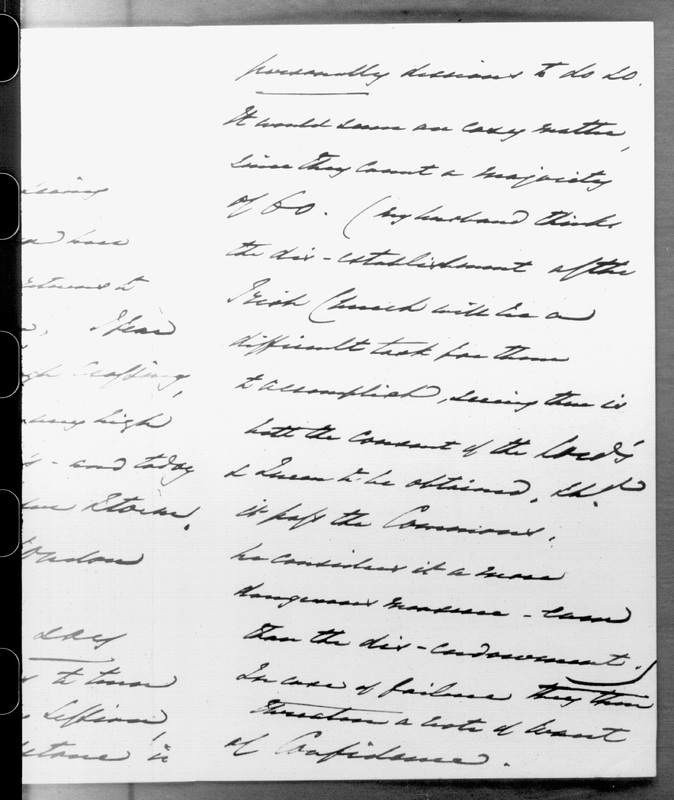 have
to
, I fear
high
- and today
Storm.
London
days
to town
is
personally desirous to do so.
It would seem an easy matter,
since they count a majority
of 60. (my husband thinks
the dis-establishment of the
Irish Church will be a
difficult task for them
to accomplish, seeing there is
both the consent of the Lord's
& Queen to be obtained, shd
it pass the Commons.
he considers it a more
dangerous measure - even
than the dis-endowment.)
In case of failure they then
threaten a vote of Want
of Confidence.